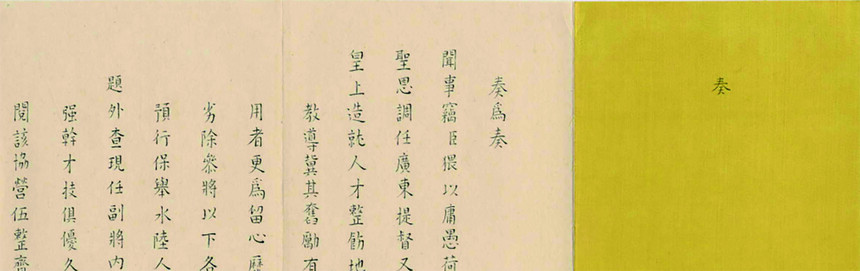 奏
奏為奏
聞事竊臣猥以庸愚荷
聖恩調任廣東提督又
皇上造就人才整飭地
教導冀其奮勵有
用者更為留心歷
劣除叅將以下各
預行保舉水陸人
題外查現任副將內
强幹才技俱優久
閱該協營伍整齊